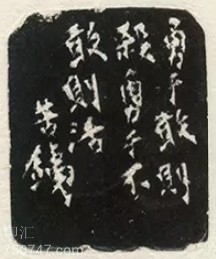 勇于敢則
殺勇于不
敢則活
苦鐵